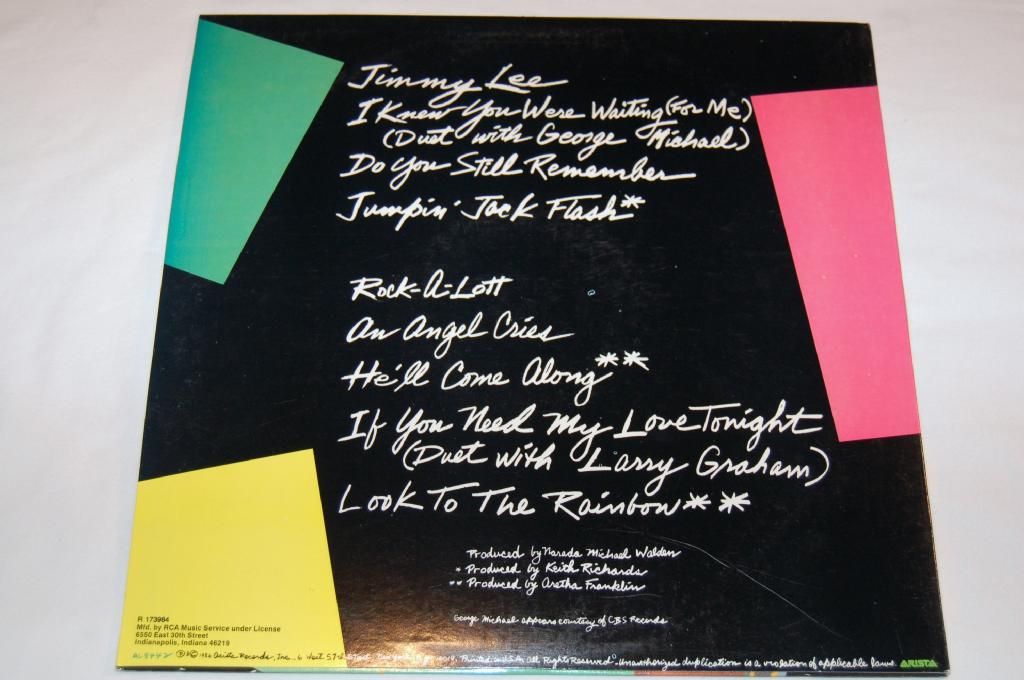 Jimmy Lee
I Knew You Were Waiting (For Me)
(Duet with George Michael)
Do You Still Remember
Jumpin' Jack Flash*
Rock-A-Lott
An Angel Cries
He'll Come Along**
If You Need My Love Tonight
(Duet with Larry Graham)
Look To The Rainbow**
Produced by Narada Michael Walden
* Produced by Keith Richards
** Produced by Aretha Franklin
George Michael appears courtesy of CBS Records
R 173984
Mfd. by RCA Music Service under License
6550 East 30th Street
Indianapolis, Indiana 46219
AL-8442 ℗© 1986 Arista Records, Inc., 6 West 57th Street, Printed in U.S.A. All Rights Reserved. Unauthorized duplication is a violation of applicable laws. ARISTA